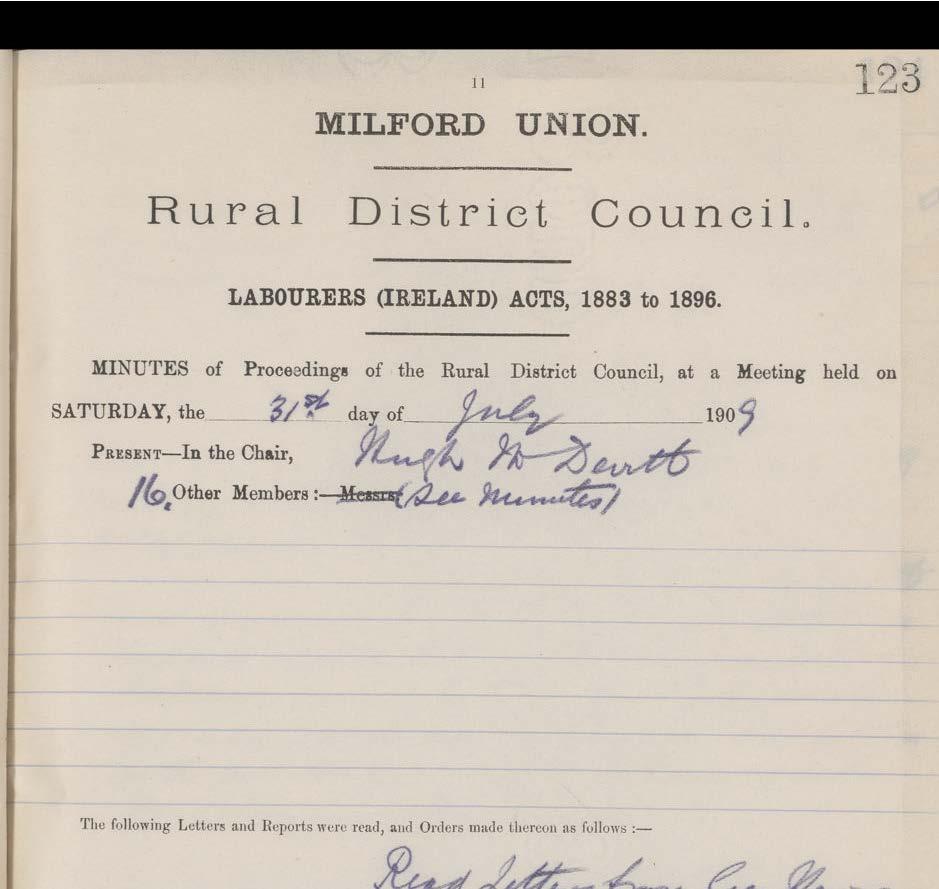 11
123
MILFORD UNION.
Rural District Council.
LABOURERS (IRELAND) ACTS, 1883 to 1896.
MINUTES of Proceedings of the Rural District Council, at a Meeting held on
SATURDAY, the 31st day of July 1909
PRESENT—In the Chair, Hugh McDevitt
16. Other Members :—Messrs (See Minutes)
The following Letters and Reports were read, and Orders made thereon as follows :—
Read Letter from